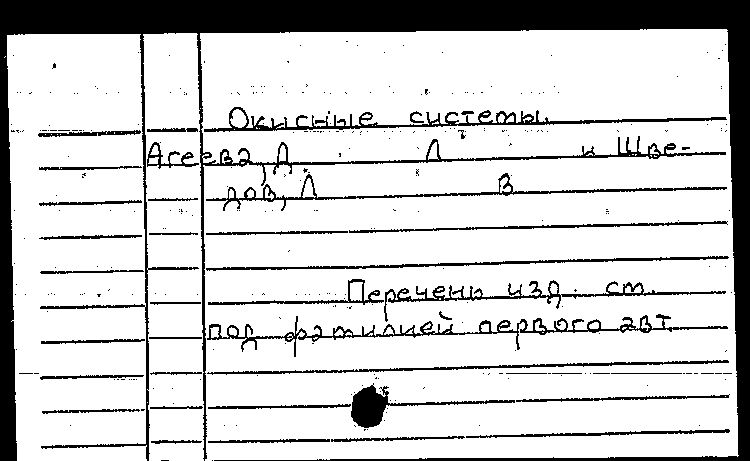 Окисные системы.
Агеева, Д Л и Шве-
дов, Л В
Перечень изд. см.
под фамилией первого авт.